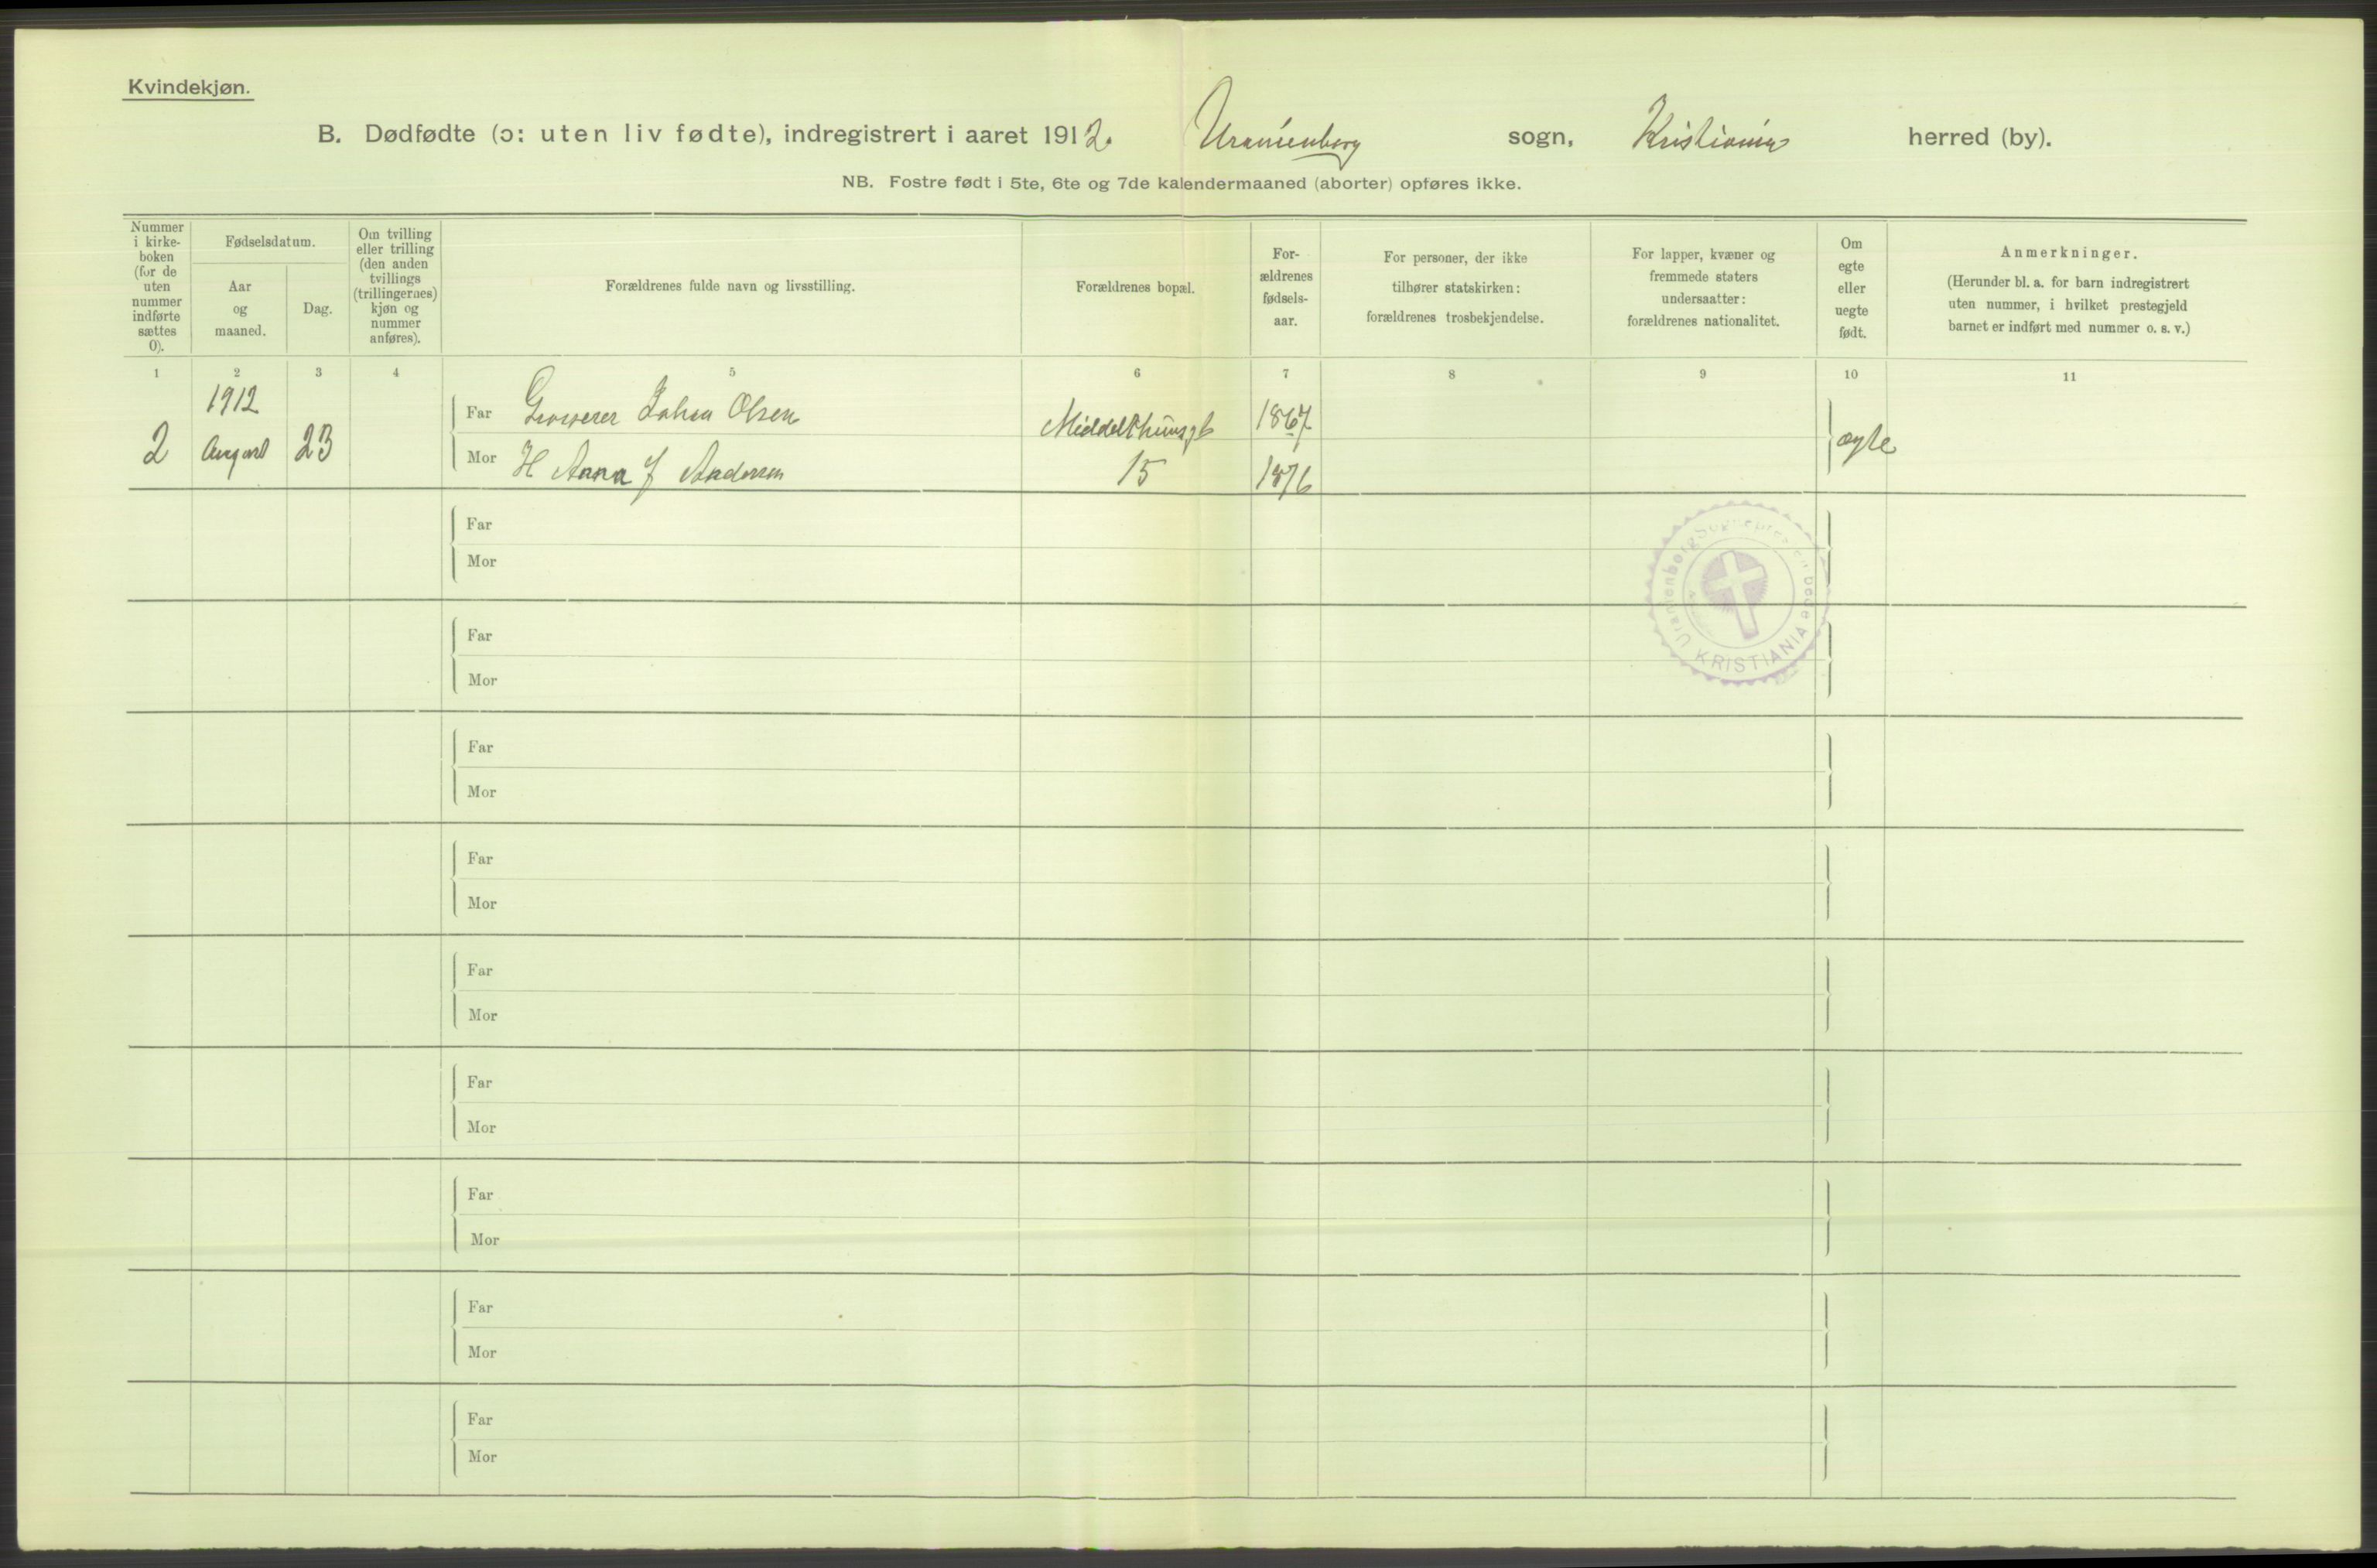 Kvindekjøn.
B. Dødfødte (ɔ: uten liv fødte), indregistrert i aaret 1912. Uranienborg sogn, Kristiania herred (by).
NB. Fostre født i 5te, 6te og 7de kalendermaaned (aborter) opføres ikke.
Nummer
i kirke-
boken
(for de
uten
nummer
indførte
sættes
0).
Fødselsdatum.
Aar
og
maaned.
Dag.
Om tvilling
eller trilling
(den anden
tvillings
(trillingernes)
kjøn og
nummer
anføres).
Forældrenes fulde navn og livsstilling.
Forældrenes bopæl.
For-
ældrenes
fødsels-
aar.
For personer, der ikke
tilhører statskirken:
forældrenes trosbekjendelse.
For lapper, kvæner og
fremmede staters
undersaatter:
forældrenes nationalitet.
Om
egte
eller
uegte
født.
Anmerkninger.
(Herunder bl. a. for barn indregistrert
uten nummer, i hvilket prestegjeld
barnet er indført med nummer o. s. v.)
1 2 3 4 5 6 7 8 9 10 11
1912
2 August 23
Far Grosserer Johan Olsen
Mor H Anna J Andersen
Middelthunsgt
15
1867
1876
ægte
Far
Mor
Uranienborg Sogneprestembede
KRISTIANIA
Far
Mor
Far
Mor
Far
Mor
Far
Mor
Far
Mor
Far
Mor
Far
Mor
Far
Mor